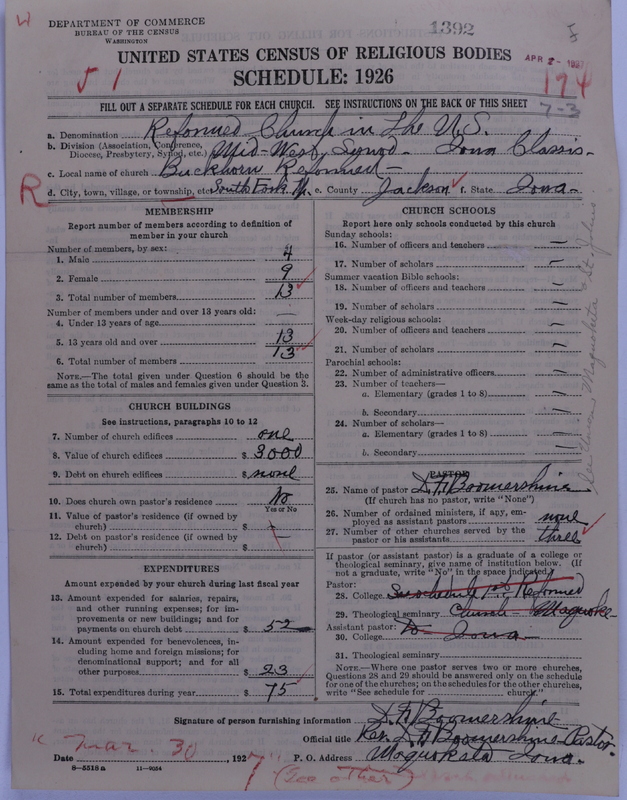 DEPARTMENT OF COMMERCE
BUREAU OF THE CENSUS
WASHINGTON
1392
APR 2 - 1927
UNITED STATES CENSUS OF RELIGIOUS BODIES
SCHEDULE: 1926
51
174
7-3
FILL OUT A SEPARATE SCHEDULE FOR EACH CHURCH. SEE INSTRUCTIONS ON THE BACK OF THIS SHEET
a. Denomination Reformed Church in the U.S.
b. Division (Association, Conference, Diocese, Presbytery, Synod, etc.) Mid-West Synod - Iowa Classis -
c. Local name of church Buckhorn Reformed -
R
d. City, town, village, or township, etc. South Fork e. County Jackson f. State Iowa -
MEMBERSHIP
Report number of members according to definition of
member in your church
Number of members, by sex:
1. Male 4
2. Female 9
3. Total number of members 13
Number of members under and over 13 years old:
4. Under 13 years of age —
5. 13 years old and over 13
6. Total number of members 13
NOTE.—The total given under Question 6 should be
the same as the total of males and females given under Question 3.
CHURCH BUILDINGS
See instructions, paragraphs 10 to 12
7. Number of church edifices one
8. Value of church edifices $ 3000
9. Debt on church edifices $ none
10. Does church own pastor's residence No
Yes or No
11. Value of pastor's residence (if owned by
church) $
12. Debt on pastor's residence (if owned by
church) $
EXPENDITURES
Amount expended by your church during last fiscal year
13. Amount expended for salaries, repairs,
and other running expenses; for im-
provements or new buildings; and for
payments on church debt $ 52
14. Amount expended for benevolences, in-
cluding home and foreign missions; for
denominational support; and for all
other purposes $ 23
15. Total expenditures during year $ 75
CHURCH SCHOOLS
Report here only schools conducted by this church
Sunday schools:
16. Number of officers and teachers —
17. Number of scholars —
Summer vacation Bible schools:
18. Number of officers and teachers —
19. Number of scholars —
Week-day religious schools:
20. Number of officers and teachers —
21. Number of scholars —
Parochial schools:
22. Number of administrative officers
23. Number of teachers—
a. Elementary (grades 1 to 8)
b. Secondary
24. Number of scholars—
a. Elementary (grades 1 to 8)
b. Secondary
PASTOR
25. Name of pastor Boomershine
(If church has no pastor, write "None")
26. Number of ordained ministers, if any, em-
ployed as assistant pastors none
27. Number of other churches served by the
pastor or his assistants three
If pastor (or assistant pastor) is a graduate of a college or
theological seminary, give name of institution below. (If
not a graduate, write "No" in the space indicated)
Pastor:
28. College See schedule 1st Reformed
29. Theological seminary Church - Maquoke-
Assistant pastor:
30. College ta - Iowa -
31. Theological seminary
NOTE.—Where one pastor serves two or more churches,
Questions 28 and 29 should be answered only on the schedule
for one of the churches; on the schedules for the other churches,
write "See schedule for church."
Signature of person furnishing information Boomershine
Official title Rev. Boomershine - Pastor.
Date Mar. 30, 1927 P. O. Address Maquoketa Iowa.
8-5518 a 11-9054
(See other)